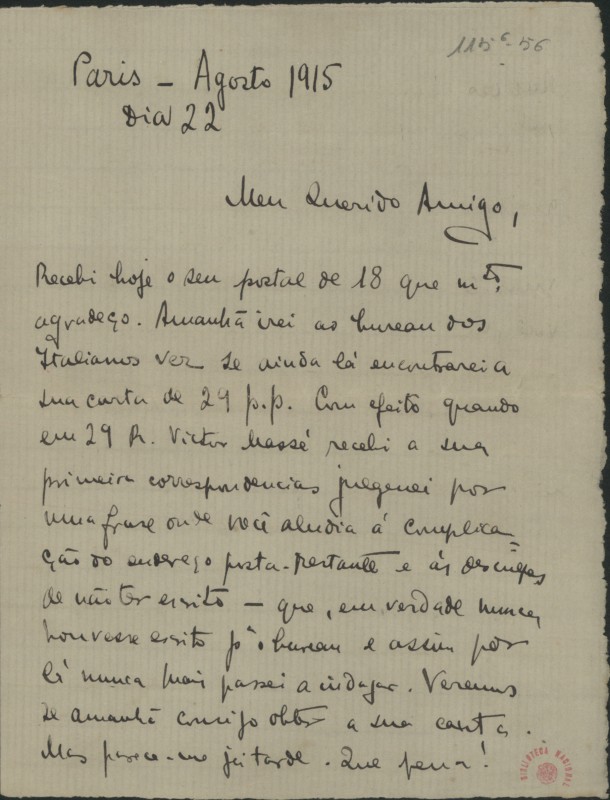 115⁶-56
Paris - Agosto 1915
Dia 22
Meu Querido Amigo,
Recebi hoje o seu postal de 18 que mto.
agradeço. Amanhã irei ao bureau dos
Italianos ver se ainda lá encontrarei a
sua carta de 29 p.p. Com efeito quando
em 29 R. Victor Massé recebi a sua
primeira correspondencias julguei por
uma frase onde você aludia á complica-
ção do endereço posta-restante e ás desculpas
de não ter escrito — que, em verdade nunca
houvesse escrito pª o bureau e assim por
lá nunca mais passei a indagar. Veremos
se amanhã consigo obter a sua carta.
Mas parece-me já tarde. Que pena!
BIBLIOTECA NACIONAL